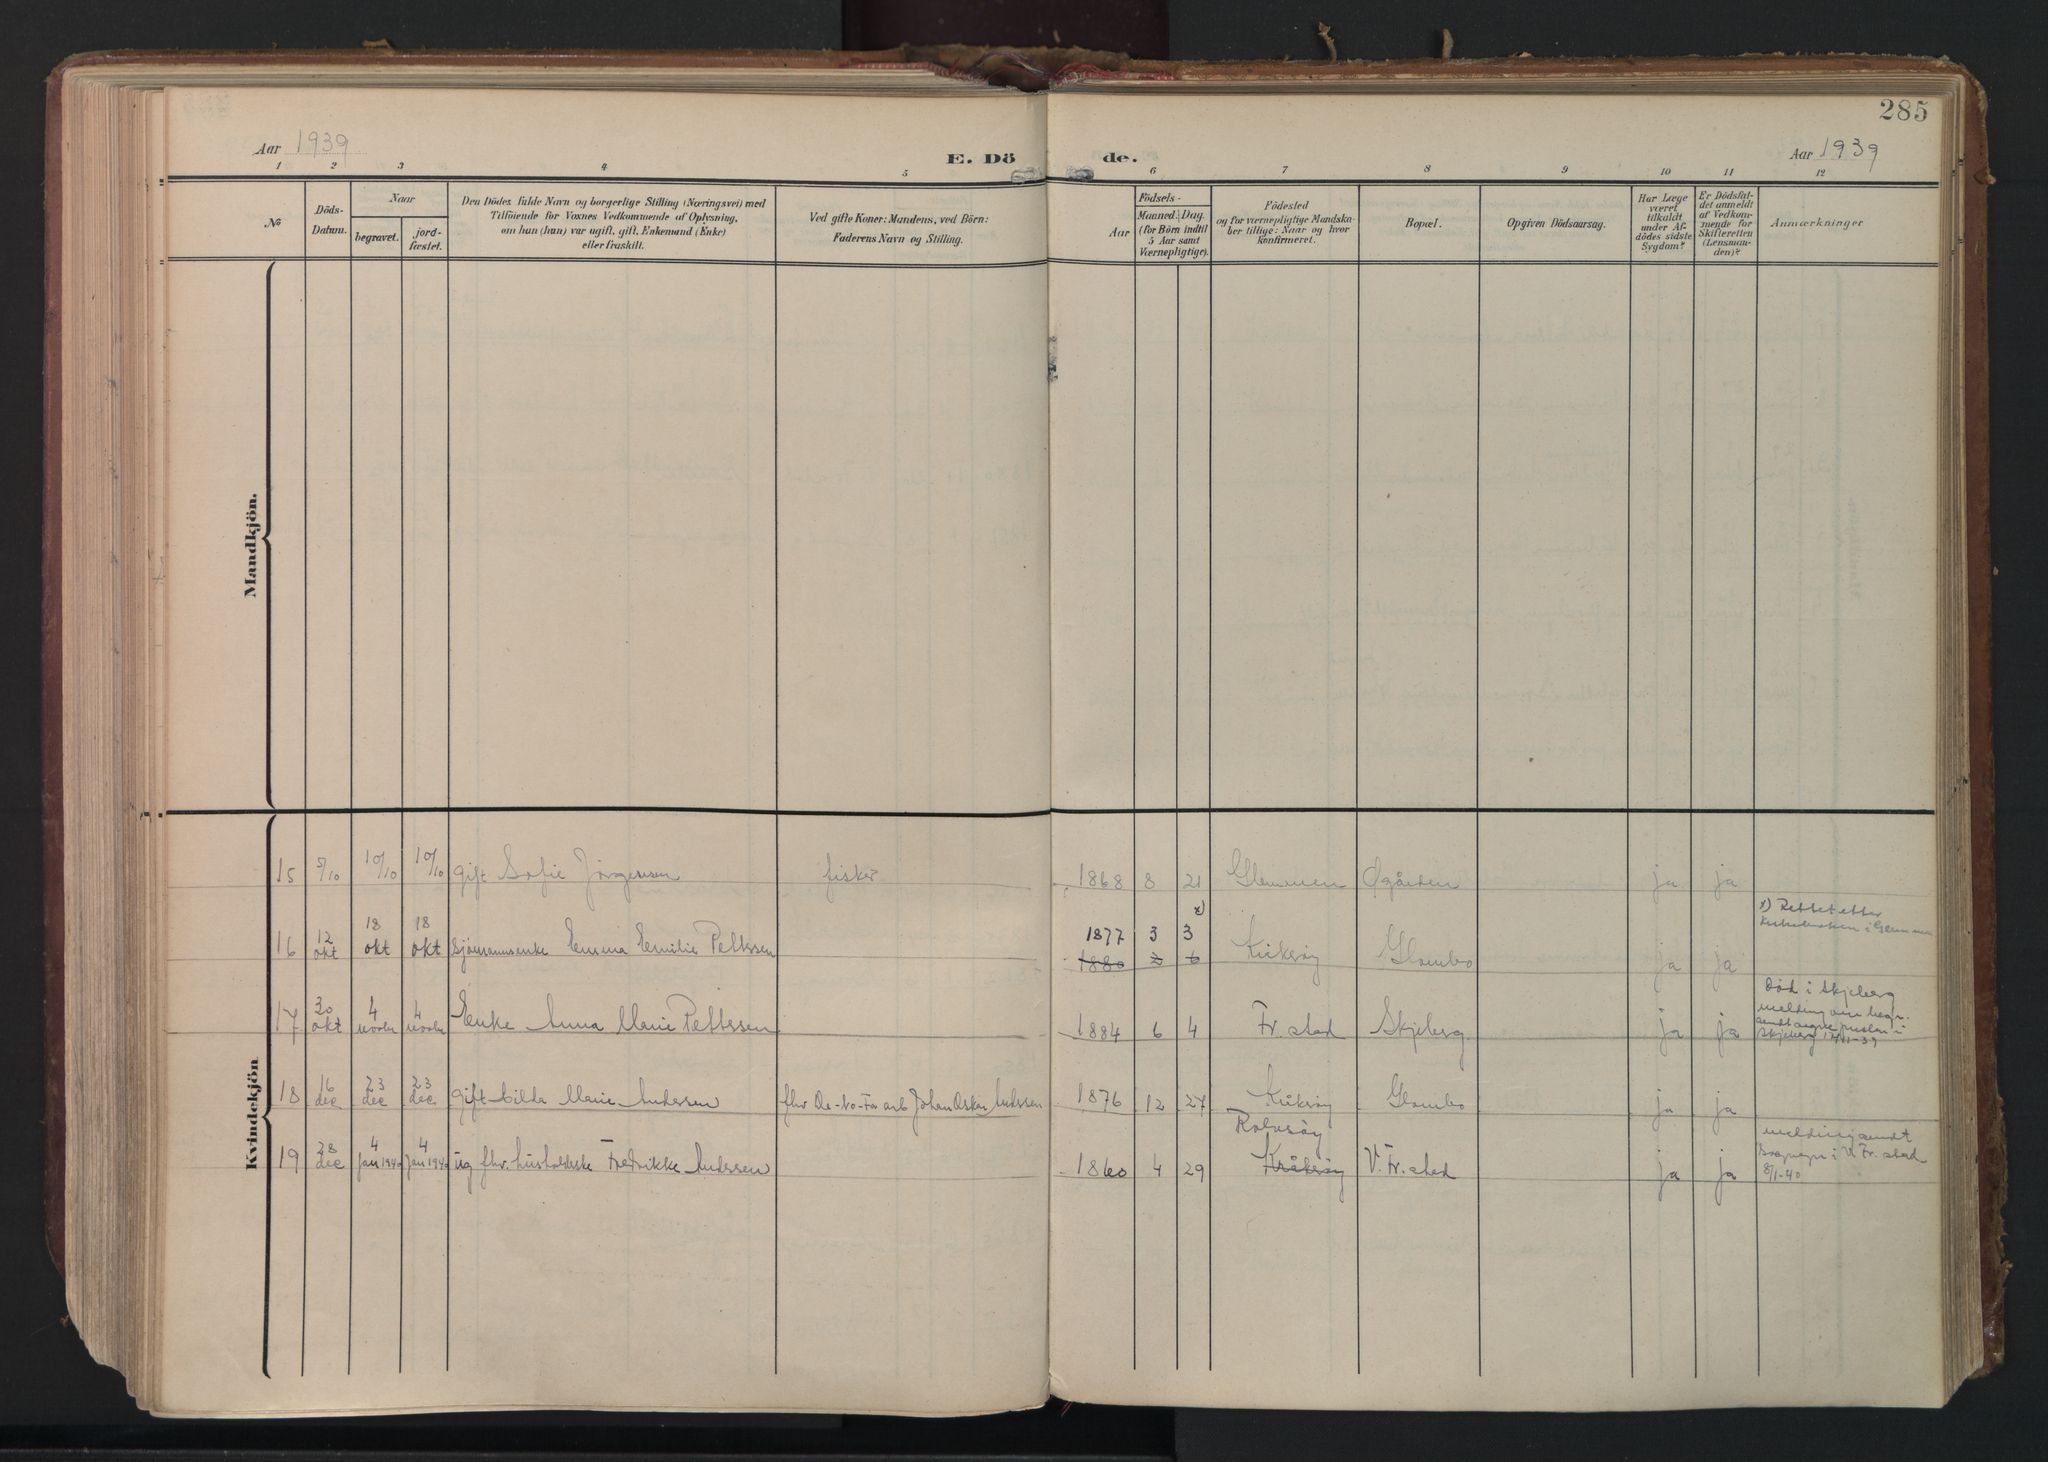 285
Aar 1939
E. Dö
de.
Aar 1939
1 2 3 4 5 6 7 8 9 10 11 12
No
Döds-Datum.
Naar
begravet.
jord-fæstet.
Den Dödes fulde Navn og borgerlige Stilling (Næringsvei) med
Tilföiende for Voxnes Vedkommende af Oplysning,
om han (hun) var ugift, gift, Enkemand (Enke)
eller fraskilt.
Ved gifte Koner: Mandens, ved Börn:
Faderens Navn og Stilling.
Födsels-
Aar
Maaned. Dag.
(for Börn indtil
5 Aar samt
Værnepligtige).
Födested
og for værnepligtige Mandska-
ber tillige: Naar og hvor
konfirmeret.
Bopæl.
Opgiven Dödsaarsag.
Har Læge
været
tilkaldt
under Af-
dödes sidste
Sygdom?
Er Dödsfal-
det anmeldt
af Vedkom-
mende for
Skifteretten
(Lensman-
den)?
Anmærkninger
Mandkjön.
Kvindekjön
15 5/10 10/10 10/10 gift Sofie Jörgensen fisker 1868 8 21 Glemmen Øgården ja ja
x)
x) Rettet etter
Kirkeboken i Glemmen
16 12 okt 18 okt 18 okt sjömannsenke Emma Emilie Pettersen 1877 3 3 Kråkerøy Glombo ja ja
1880 2 6
17 30 okt 4 novbr 4 novbr Enke Anna Marie Pettersen 1884 6 4 Fr.stad Skjeberg ja ja
Død i Skjeberg
melding om begr.
sendt sognepresten i
Skjeberg
18 16 dec 23 dec 23 dec gift Hilda Marie Andersen fhv De-No-Fa arb Johan Oskar Andersen 1876 12 27 Kråkerøy Glombo ja ja
Rolvsøy
19 28 dec 4 Jan 1940 4 Jan 1940 ug fhv. husholderske Fredrikke Andersen 1860 4 29 Kråkerøy V. Fr.stad ja ja
melding sendt
Sognepr i V. Fr.stad
8/1-40